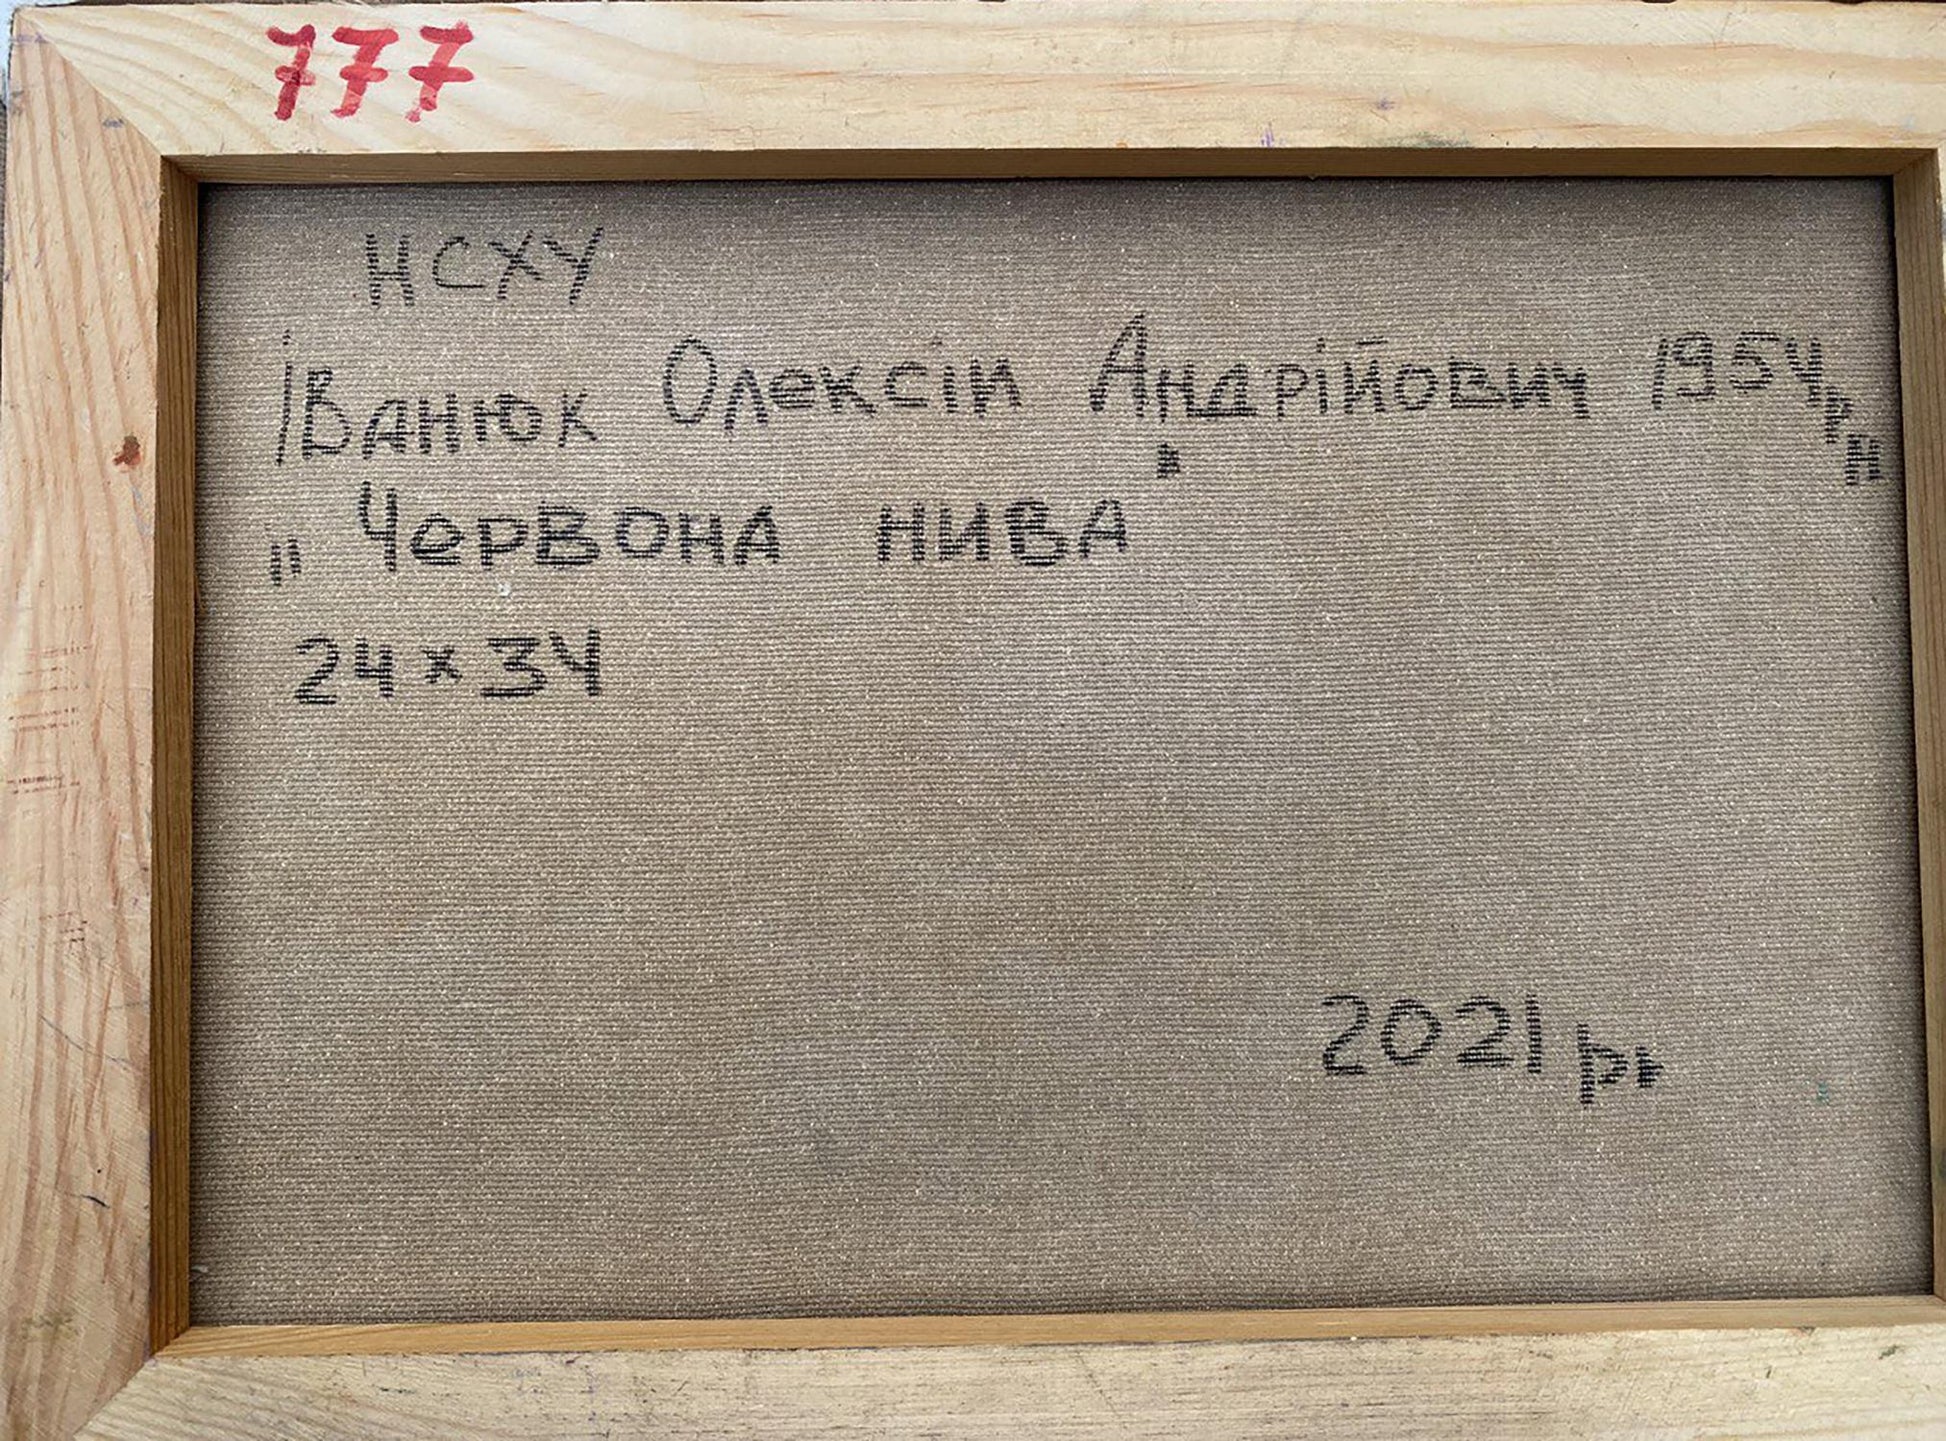 777
НСХУ
Іванюк Олексіи Андрійович 1954р.н
„Червона нива"
24×34
2021 р.